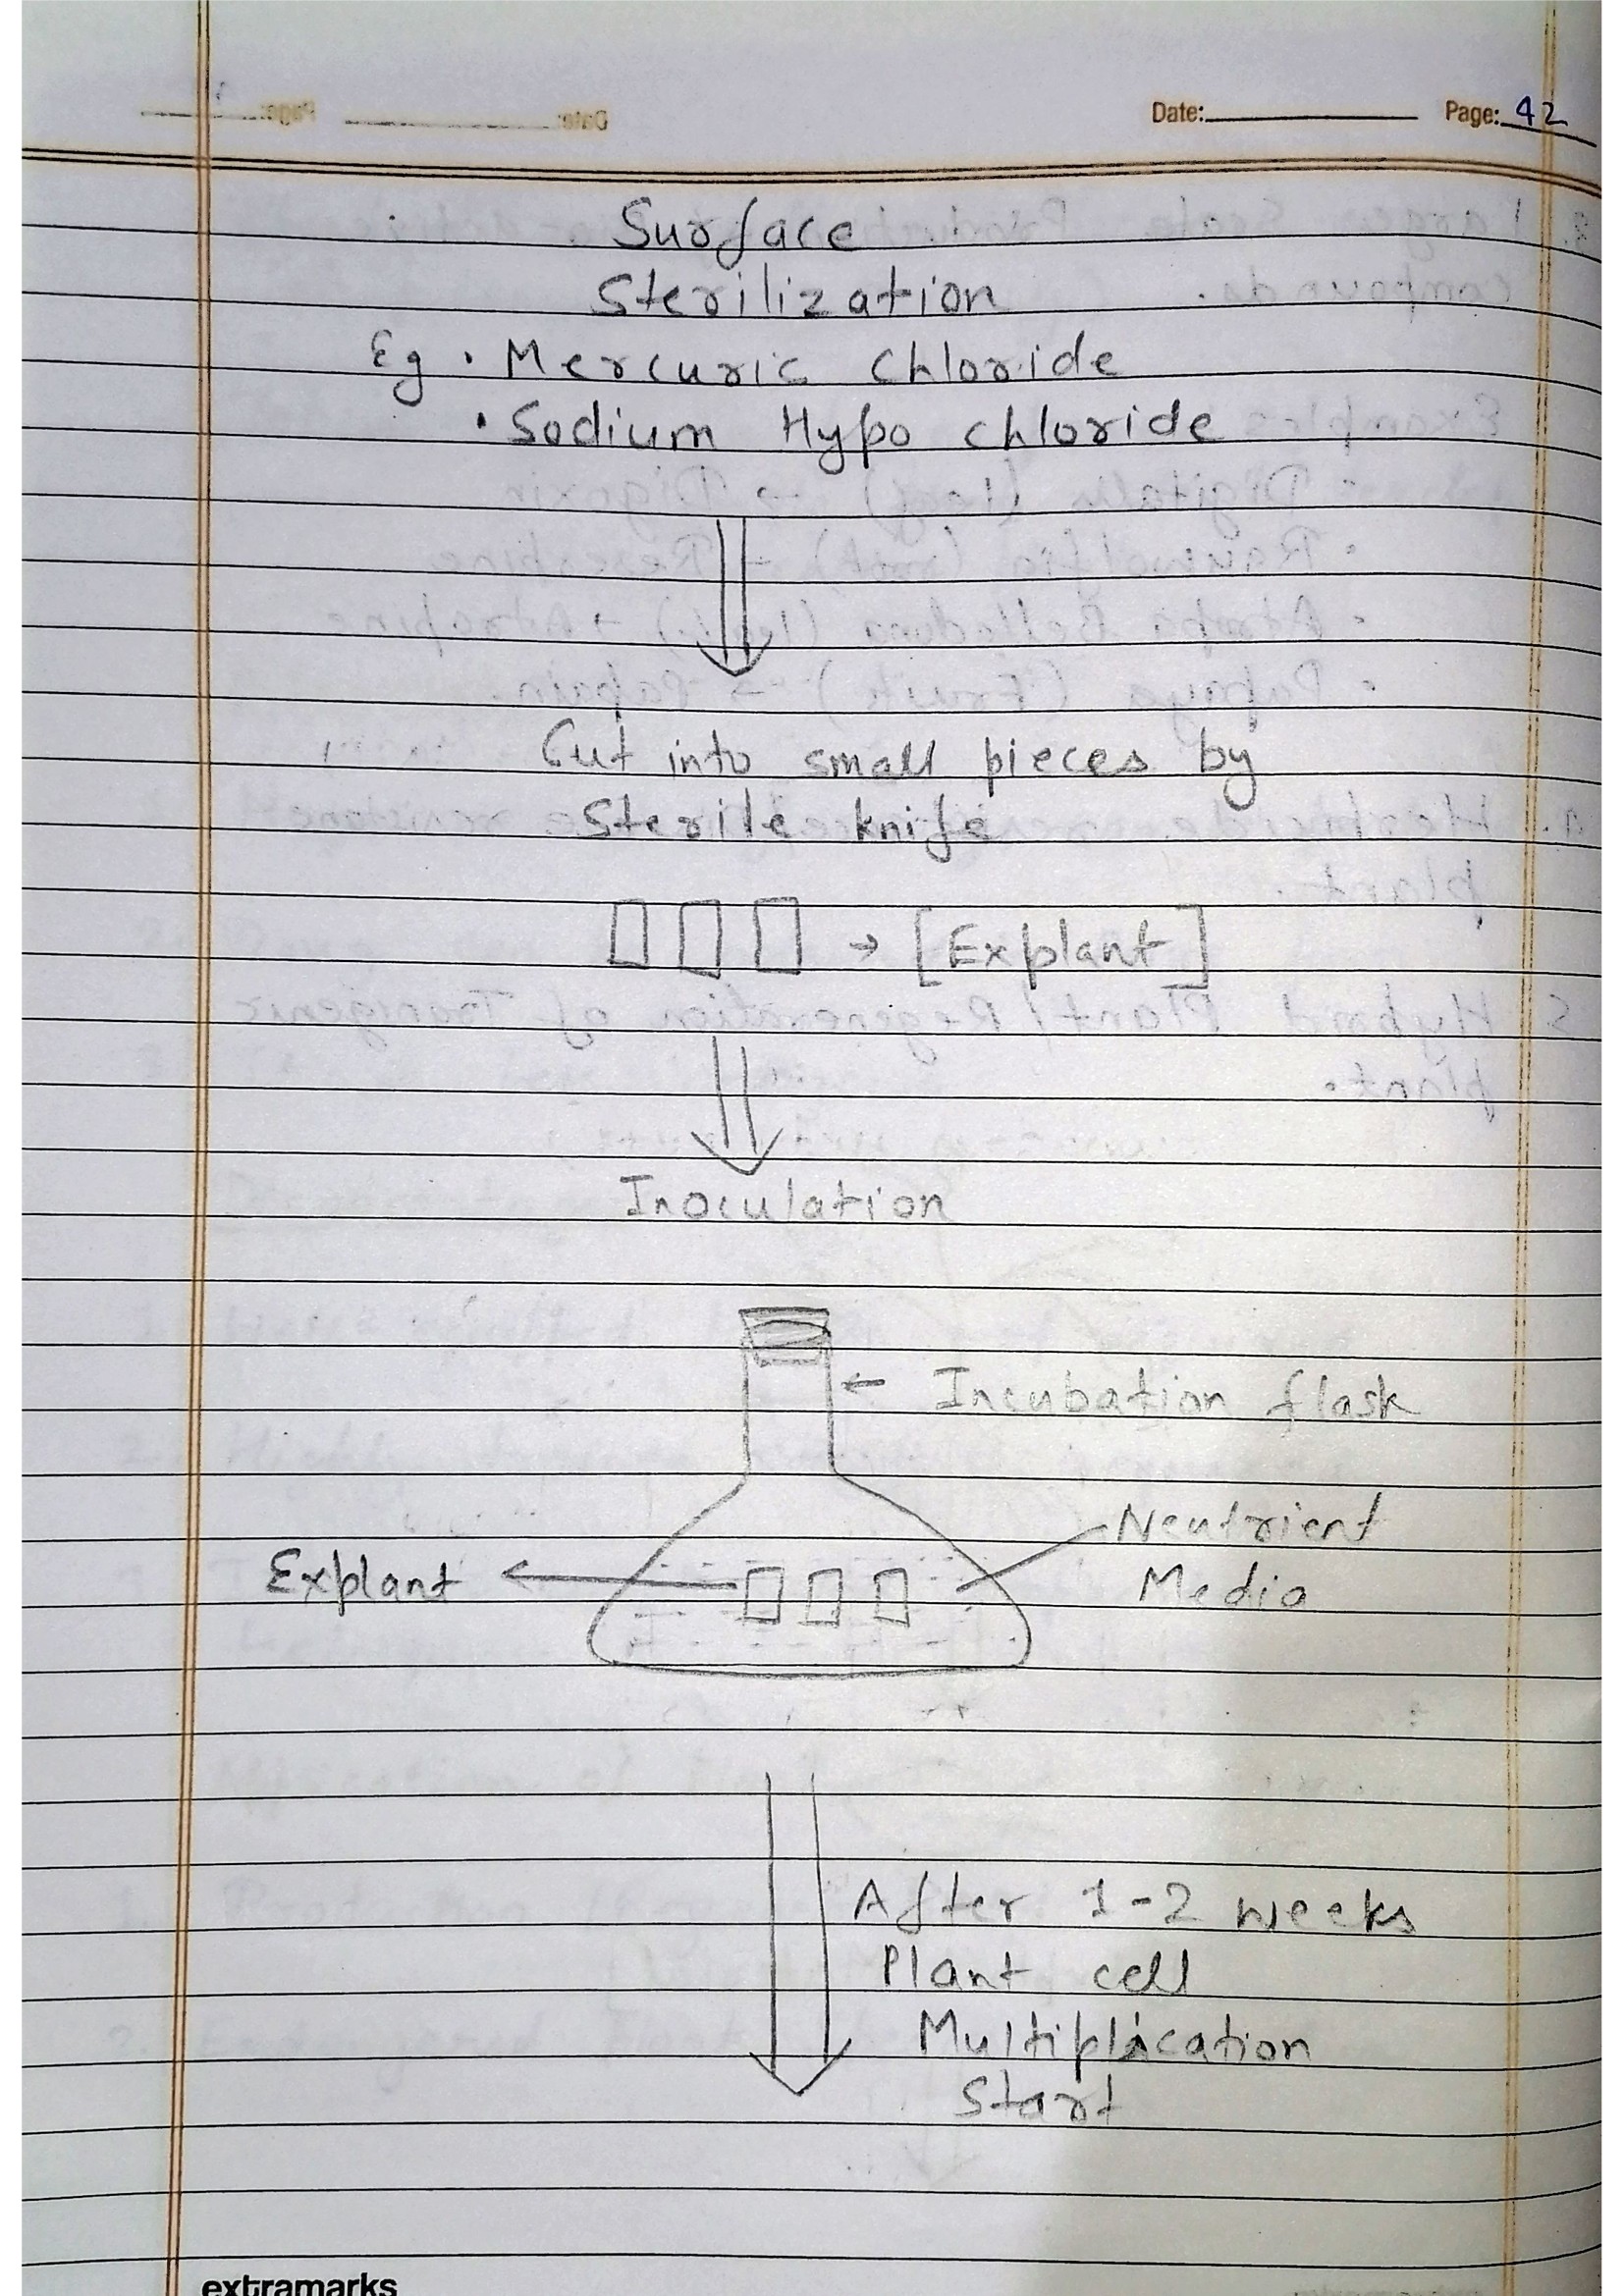 Date: Page: 42
Surface
Sterilization
Eg • Mercuric Chloride
• Sodium Hypo chloride
Cut into small pieces by
Sterile knife
→ [Explant]
Inoculation
← Incubation flask
Neutrient
Explant
Media
After 1-2 weeks
Plant cell
Multiplication
Start
extramarks